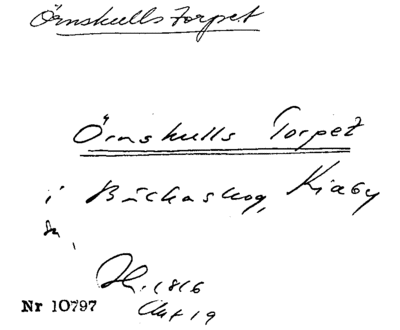 Örnskulls Torpet
Örnskulls Torpet
i Bäckaskog, Kiaby
sn,
H. 1816
Akt 19
Nr 10797